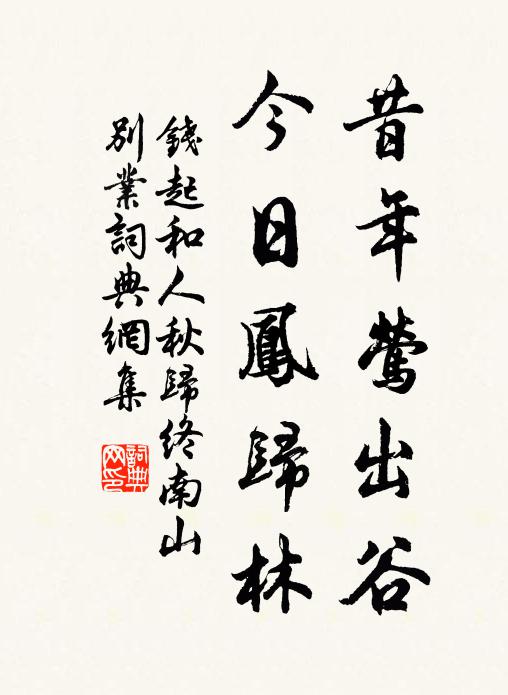 昔年鶯出谷
今日鳳歸林
錢起和人秋歸終南山
別業詞典網集
詞典網印